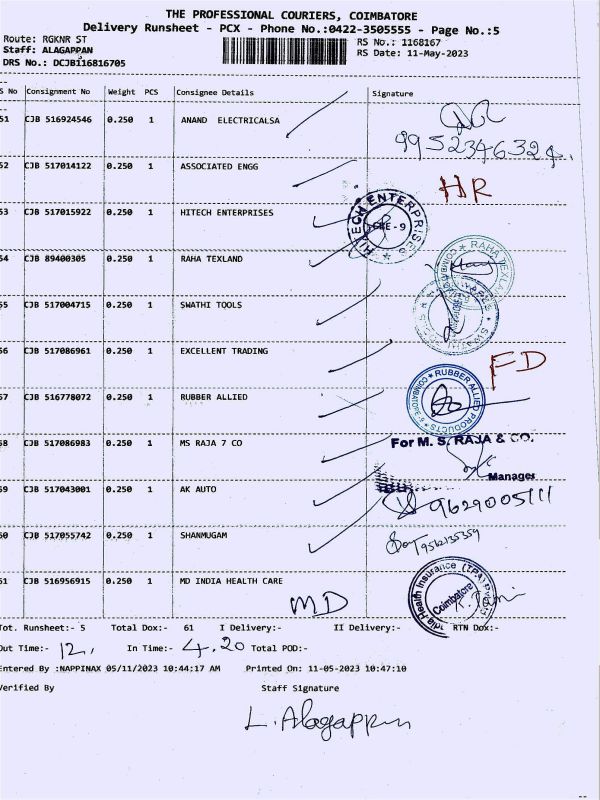 THE PROFESSIONAL COURIERS, COIMBATORE
Delivery Runsheet - PCX - Phone No.:0422-3505555 - Page No.:5
Route: RGKNR ST
Staff: ALAGAPPAN
DRS No.: DCJB116816705
RS No.: 1168167
RS Date: 11-May-2023
S No Consignment No Weight PCS Consignee Details Signature
51 CJB 516924546 0.250 1 ANAND ELECTRICALSA
9952346324
52 CJB 517014122 0.250 1 ASSOCIATED ENGG
HR
53 CJB 517015922 0.250 1 HITECH ENTERPRISES
HITECH ENTERPRISES
CBE - 9
54 CJB 89400305 0.250 1 RAHA TEXLAND
RAHA TEXLA
55 CJB 517004715 0.250 1 SWATHI TOOLS
56 CJB 517086961 0.250 1 EXCELLENT TRADING
FD
57 CJB 516778072 0.250 1 RUBBER ALLIED
RUBBER ALLIED PRODUCTS
COIMBATORE
58 CJB 517086983 0.250 1 MS RAJA 7 CO
For M. S. RAJA & CO.
Manager
59 CJB 517043001 0.250 1 AK AUTO
9629005111
60 CJB 517055742 0.250 1 SHANMUGAM
9562135359
61 CJB 516956915 0.250 1 MD INDIA HEALTH CARE
MD
India Health Insurance (TPA)
Coimbatore
Tot. Runsheet:- 5 Total Dox:- 61 I Delivery:- II Delivery:- RTN Dox:-
Out Time:- 12, In Time:- 4.20 Total POD:-
Entered By :NAPPINAX 05/11/2023 10:44:17 AM Printed On: 11-05-2023 10:47:10
Verified By Staff Signature
L. Alagappan